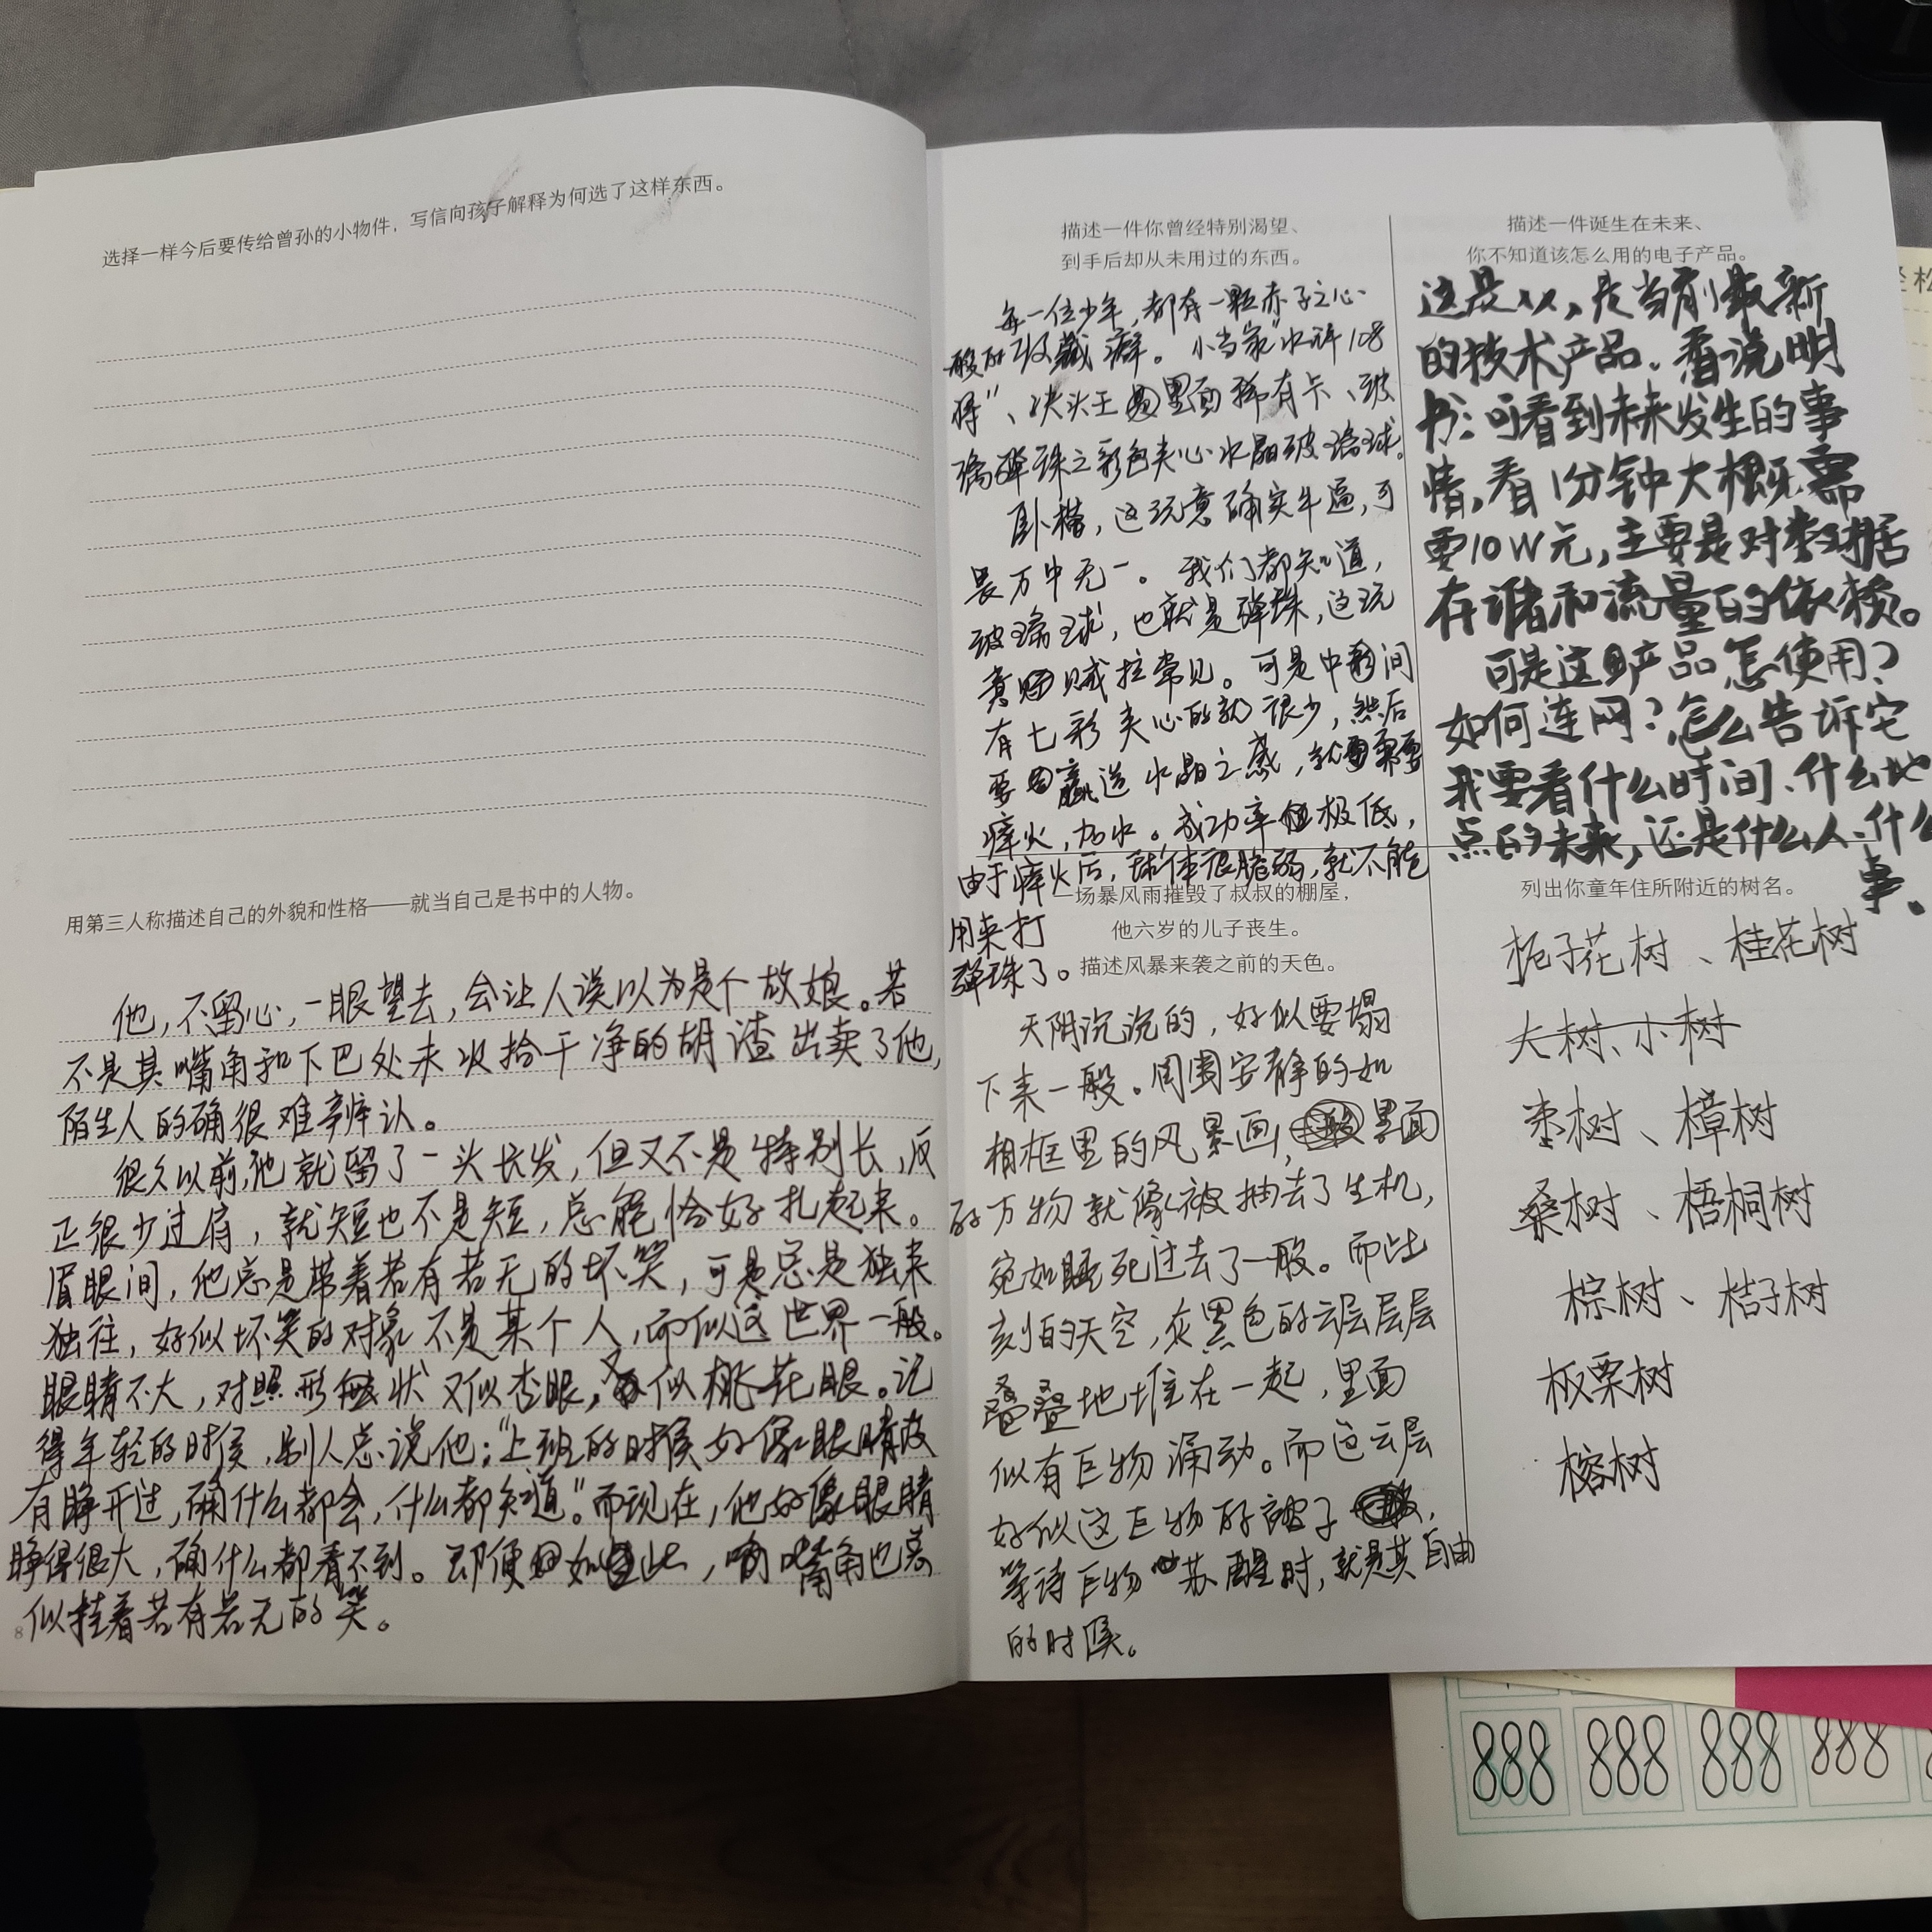 选择一样今后要传给曾孙的小物件，写信向孩子解释为何选了这样东西。
用第三人称描述自己的外貌和性格——就当自己是书中的人物。
他，不留心，一眼望去，会让人误以为是个故娘。若
不是其嘴角和下巴处未收拾干净的胡渣出卖了他，
陌生人的确很难辨认。
很久以前，他就留了一头长发，但又不是特别长，反
正很少过肩，就短也不是短，总能恰好扎起来。
眉眼间，他总是带着若有若无的坏笑，可是总是独来
独往，好似坏笑的对象不是某个人，而似这世界一般。
眼睛不大，对照形状又似杏眼，又似桃花眼。记
得年轻的时候，别人总说他："上班的时候好像眼睛没
有睁开过，确什么都会，什么都知道。"而现在，他好像眼睛
睁得很大，确什么都看不到。即便如此，嘴角也总
似挂着若有若无的笑。
8
描述一件你曾经特别渴望、
到手后却从未用过的东西。
每一位少年，都有一颗赤子之心
般的收藏癖。小当家"水浒108
将"、块头王里面稀有卡、玻
璃弹珠之彩色夹心水晶玻璃球。
卧槽，这玩意确实牛逼，可
畏万中无一。我们都知道，
玻璃球，也就是弹珠，这玩
意贼拉常见。可是中间
有七彩夹心的就很少，然后
要赢造水晶之感，就需要
焠火，加水。成功率极低，
由于焠火后，球体很脆弱，就不能
用来打
弹珠了。
描述一件诞生在未来、
你不知道该怎么用的电子产品。
这是XX，是当前最新
的技术产品。看说明
书：可看到未来发生的事
情，看1分钟大概需
要10W元，主要是对数据
存储和流量的依赖。
可是这产品怎使用？
如何连网？怎么告诉它
我要看什么时间、什么地
点的未来，还是什么人、什么
事。
一场暴风雨摧毁了叔叔的棚屋，
他六岁的儿子丧生。
描述风暴来袭之前的天色。
天阴沉沉的，好似要塌
下来一般。周围安静的如
相框里的风景画，里面
的万物就像被抽去了生机，
宛如睡死过去了一般。而此
刻的天空，灰黑色的云层层层
叠叠地堆在一起，里面
似有巨物涌动。而这云层
好似这巨物的被子，
等待巨物苏醒时，就是其自由
的时候。
列出你童年住所附近的树名。
栀子花树、桂花树
大树、小树
枣树、樟树
桑树、梧桐树
棕树、桔子树
板栗树
榕树
888 888 888 888